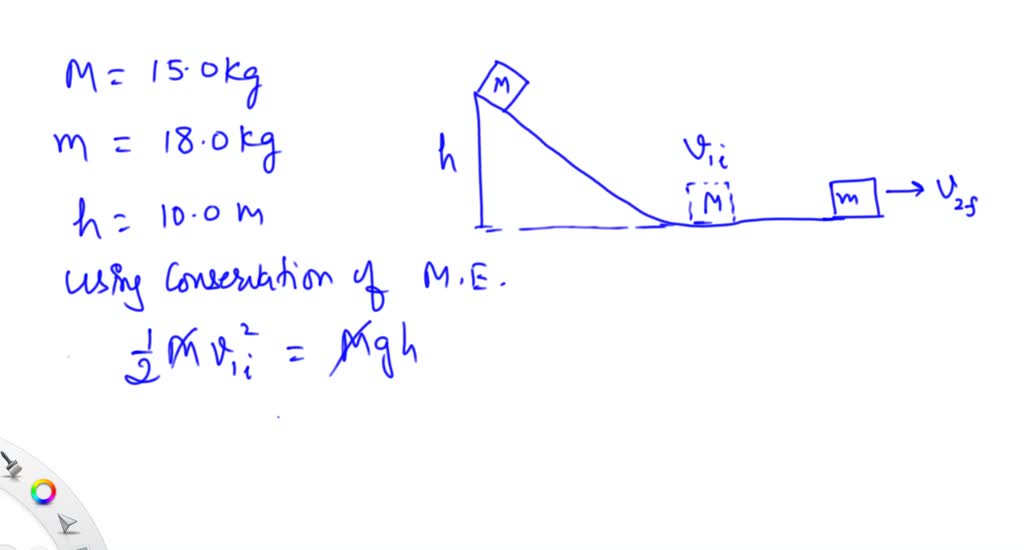 M = 15.0kg
m = 18.0kg
h = 10.0 m
M
h
v₁ᵢ
M
m → v₂f
using Conservation of M.E.
½ M v₁ᵢ² = Mgh